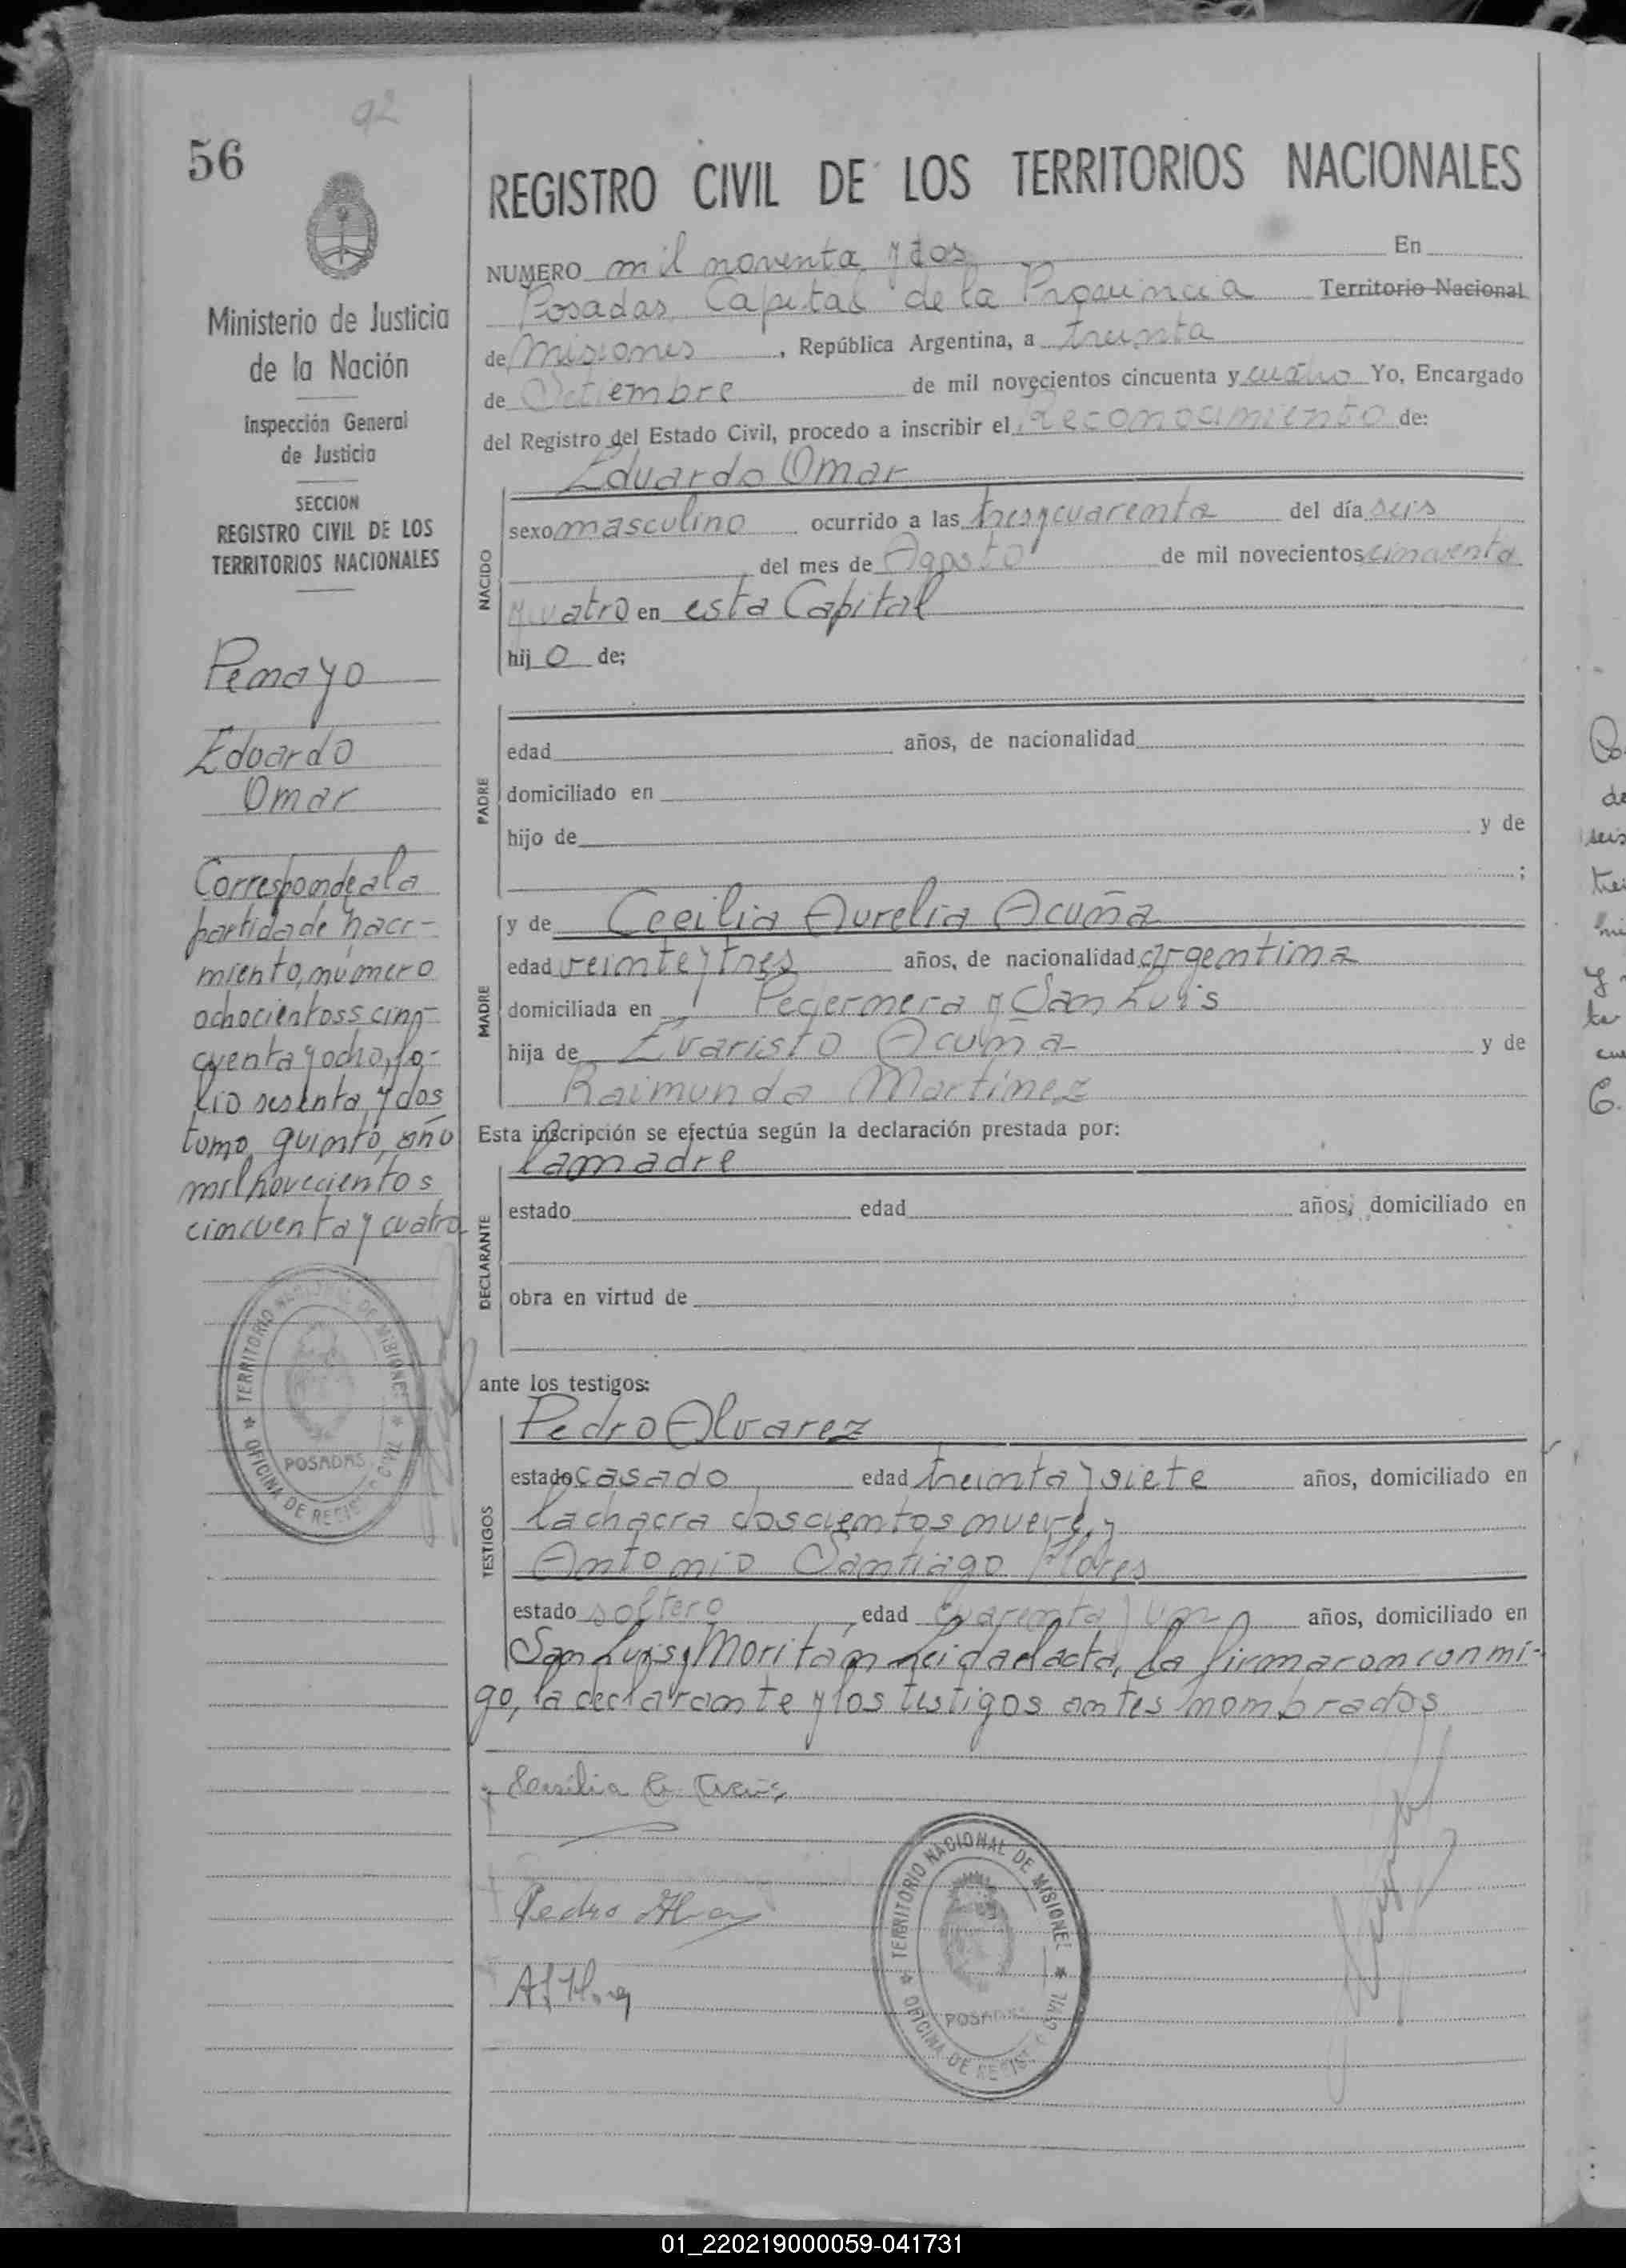 92
56
Ministerio de Justicia
de la Nación
Inspección General
de Justicia
SECCION
REGISTRO CIVIL DE LOS
TERRITORIOS NACIONALES
Pemayo
Eduardo
Omar
Corresponde a la
partida de naci-
miento, número
ochocientoss cin-
cuenta y ocho, fo-
lio sesenta y dos
tomo quinto, año
mil novecientos
cincuenta y cuatro
TERRITORIO NACIONAL DE MISIONES
POSADAS
OFICINA DE REGISTRO CIVIL
REGISTRO CIVIL DE LOS TERRITORIOS NACIONALES
NUMERO mil noventa y dos En
Posadas, Capital de la Provincia Territorio Nacional
de Misiones, República Argentina, a treinta
de Setiembre de mil novecientos cincuenta y cuatro Yo, Encargado
del Registro del Estado Civil, procedo a inscribir el Reconocimiento de:
Eduardo Omar
NACIDO
sexo masculino ocurrido a las tres y cuarenta del día seis
del mes de Agosto de mil novecientos cincuenta
y cuatro en esta Capital
hij o de;
PADRE
edad años, de nacionalidad
domiciliado en
hijo de y de
;
MADRE
y de Cecilia Aurelia Acuña
edad veinte y tres años, de nacionalidad argentina
domiciliada en y San Luis
hija de Evaristo Acuña y de
Raimunda Martínez
Esta inscripción se efectúa según la declaración prestada por:
la madre
DECLARANTE
estado edad años, domiciliado en
obra en virtud de
ante los testigos:
TESTIGOS
Pedro Alvarez
estado casado edad treinta y siete años, domiciliado en
la chacra doscientos nueve, y
Antonio Santiago Flores
estado soltero, edad cuarenta y un años, domiciliado en
San Luis y Moritán Leida el acta, la firmaron conmi-
go, la declarante y los testigos antes nombrados
Pedro
TERRITORIO NACIONAL DE MISIONES
POSADAS
OFICINA DE REGISTRO CIVIL
01_220219000059-041731